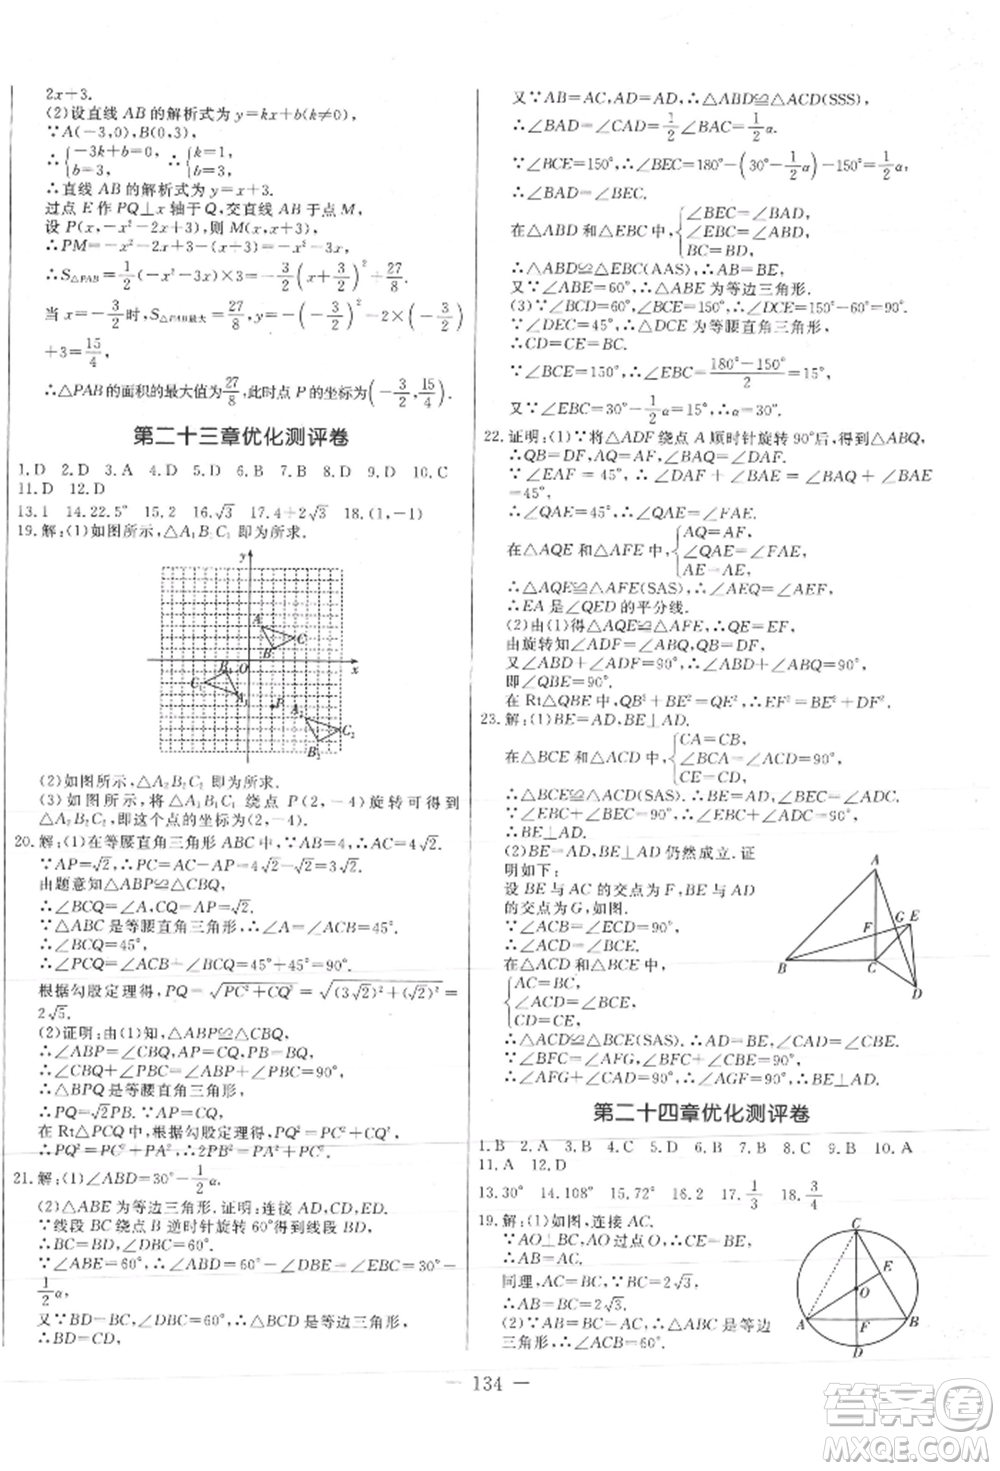 2x+3.
(2)设直线 AB 的解析式为 y=kx+b(k≠0),
∵A(-3,0),B(0,3),
∴{-3k+b=0, b=3, ∴{k=1, b=3,
∴直线 AB 的解析式为 y=x+3.
过点 E 作 PQ⊥x 轴于 Q,交直线 AB 于点 M,
设 P(x,-x²-2x+3),则 M(x,x+3),
∴PM=-x²-2x+3-(x+3)=-x²-3x,
∴S△PAB=1/2(-x²-3x)×3=-3/2(x+3/2)²+27/8,
当 x=-3/2时,S△PAB最大=27/8,y=-(-3/2)²-2×(-3/2)
+3=15/4,
∴△PAB的面积的最大值为27/8,此时点 P的坐标为(-3/2,15/4).
第二十三章优化测评卷
1.D 2.D 3.A 4.D 5.D 6.B 7.B 8.D 9.D 10.C
11.D 12.D
13.1 14.22.5° 15.2 16.√3 17.4+2√3 18.(1,-1)
19.解:(1)如图所示,△A₁B₁C₁ 即为所求.
y
A
C
B
B₁ O x
C₁
A₁
A₂
C₂
B₂
(2)如图所示,△A₂B₂C₂ 即为所求.
(3)如图所示,将△A₁B₁C₁ 绕点 P(2,-4)旋转可得到
△A₂B₂C₂,即这个点的坐标为(2,-4).
20.解:(1)在等腰直角三角形 ABC中,∵AB=4,∴AC=4√2.
∵AP=√2,∴PC=AC-AP=4√2-√2=3√2.
由题意知△ABP≌△CBQ,
∴∠BCQ=∠A,CQ=AP=√2.
∵△ABC 是等腰直角三角形,∴∠A=∠ACB=45°,
∴∠BCQ=45°,
∴∠PCQ=∠ACB+∠BCQ=45°+45°=90°.
根据勾股定理得,PQ=√(PC²+CQ²)=√((3√2)²+(√2)²)=
2√5.
(2)证明:由(1)知,△ABP≌△CBQ,
∴∠ABP=∠CBQ,AP=CQ,PB=BQ,
∴∠CBQ+∠PBC=∠ABP+∠PBC=90°,
∴△BPQ 是等腰直角三角形,△PCQ是直角三角形,
∴PQ=√2PB.∵AP=CQ,
在 Rt△PCQ 中,根据勾股定理得,
PQ²=PC²+CQ²=PC²+PA²,∴2PB²=PA²+PC².
21.解:(1)∠ABD=30°-1/2α.
(2)△ABE 为等边三角形.证明:连接 AD,CD,ED,
∵线段 BC 绕点 B 逆时针旋转 60°得到线段 BD,
∴BC=BD,∠DBC=60°.
∵∠ABE=60°,∴∠ABD=60°-∠DBE=∠EBC=30°-
1/2α,
又∵BD=BC,∠DBC=60°,∴△BCD 是等边三角形,
∴BD=CD,
又∵AB=AC,AD=AD,∴△ABD≌△ACD(SSS),
∴∠BAD=∠CAD=1/2∠BAC=1/2α.
∵∠BCE=150°,∴∠BEC=180°-(30°-1/2α)-150°=1/2α.
∴∠BAD=∠BEC.
在△ABD 和△EBC 中,{∠BEC=∠BAD, ∠EBC=∠ABD, BC=BD,
∴△ABD≌△EBC(AAS),∴AB=BE.
又∵∠ABE=60°,∴△ABE为等边三角形.
(3)∵∠BCD=60°,∠BCE=150°,∴∠DCE=150°-60°=90°.
∵∠DEC=45°,∴△DCE 为等腰直角三角形,
∴CD=CE=BC.
∵∠BCE=150°,∴∠EBC=(180°-150°)/2=15°,
又∵∠EBC=30°-1/2α=15°,∴α=30°.
22.证明:(1)∵将△ADF 绕点 A 顺时针旋转 90°后,得到△ABQ,
∴QB=DF,AQ=AF,∠BAQ=∠DAF.
∵∠EAF=45°,∴∠DAF+∠BAE=∠BAQ+∠BAE
=45°,
∴∠QAE=45°,∴∠QAE=∠FAE.
在△AQE 和△AFE 中,{AQ=AF, ∠QAE=∠FAE, AE=AE,
∴△AQE≌△AFE(SAS),∴∠AEQ=∠AEF,
∴EA 是∠QED 的平分线.
(2)由(1)得△AQE≌△AFE,∴QE=EF,
由旋转知∠ADF=∠ABQ,QB=DF.
又∵∠ADF+∠ABD=90°,∴∠ABQ+∠ABD=90°,
即∠QBE=90°.
在 Rt△QBE 中,QB²+BE²=QE²,∴EF²=BE²+DF².
23.解:(1)BE=AD,BE⊥AD.
在△BCE 和△ACD 中,{CA=CB, ∠ACB=∠ACD=90°, CE=CD,
∴△BCE≌△ACD(SAS).∴BE=AD,∠EBC=∠CAD.
∵∠EBC+∠BEC=90°,∠BEC=∠AED,
∴∠AED+∠CAD=90°,
∴BE⊥AD.
(2)BE=AD,BE⊥AD 仍然成立.证
明如下:
设 BE与 AC 的交点为 F,BE与 AD
的交点为 G,如图.
∵∠ACB=∠ECD=90°,
∴∠ACD=∠BCE.
在△ACD 和△BCE 中,
{AC=BC, ∠ACD=∠BCE, CD=CE,
A
G E
F
B C
D
∴△ACD≌△BCE(SAS).∴AD=BE,∠CAD=∠CBE.
∵∠BFC=∠AFG,∠BFC+∠CBE=90°,
∴∠AFG+∠CAD=90°,∴∠AGF=90°,∴BE⊥AD.
第二十四章优化测评卷
1.B 2.A 3.B 4.C 5.D 6.B 7.B 8.C 9.B 10.A
11.A 12.D
13.30° 14.108° 15.72° 16.2 17.1/3 18.3/4
19.解:(1)如图,连接 AC.
∵AO⊥BC,AO 过点 O,∴CE=BE,
∴AB=AC.
同理,AC=BC,∵BC=2√3,
∴AB=AC=BC=2√3.
(2)∵AB=AC=BC,∴△ABC 是等边
三角形,∴∠ACB=60°.
C
E
O
A F B
D
— 134 —
答案圈
MXQE.COM